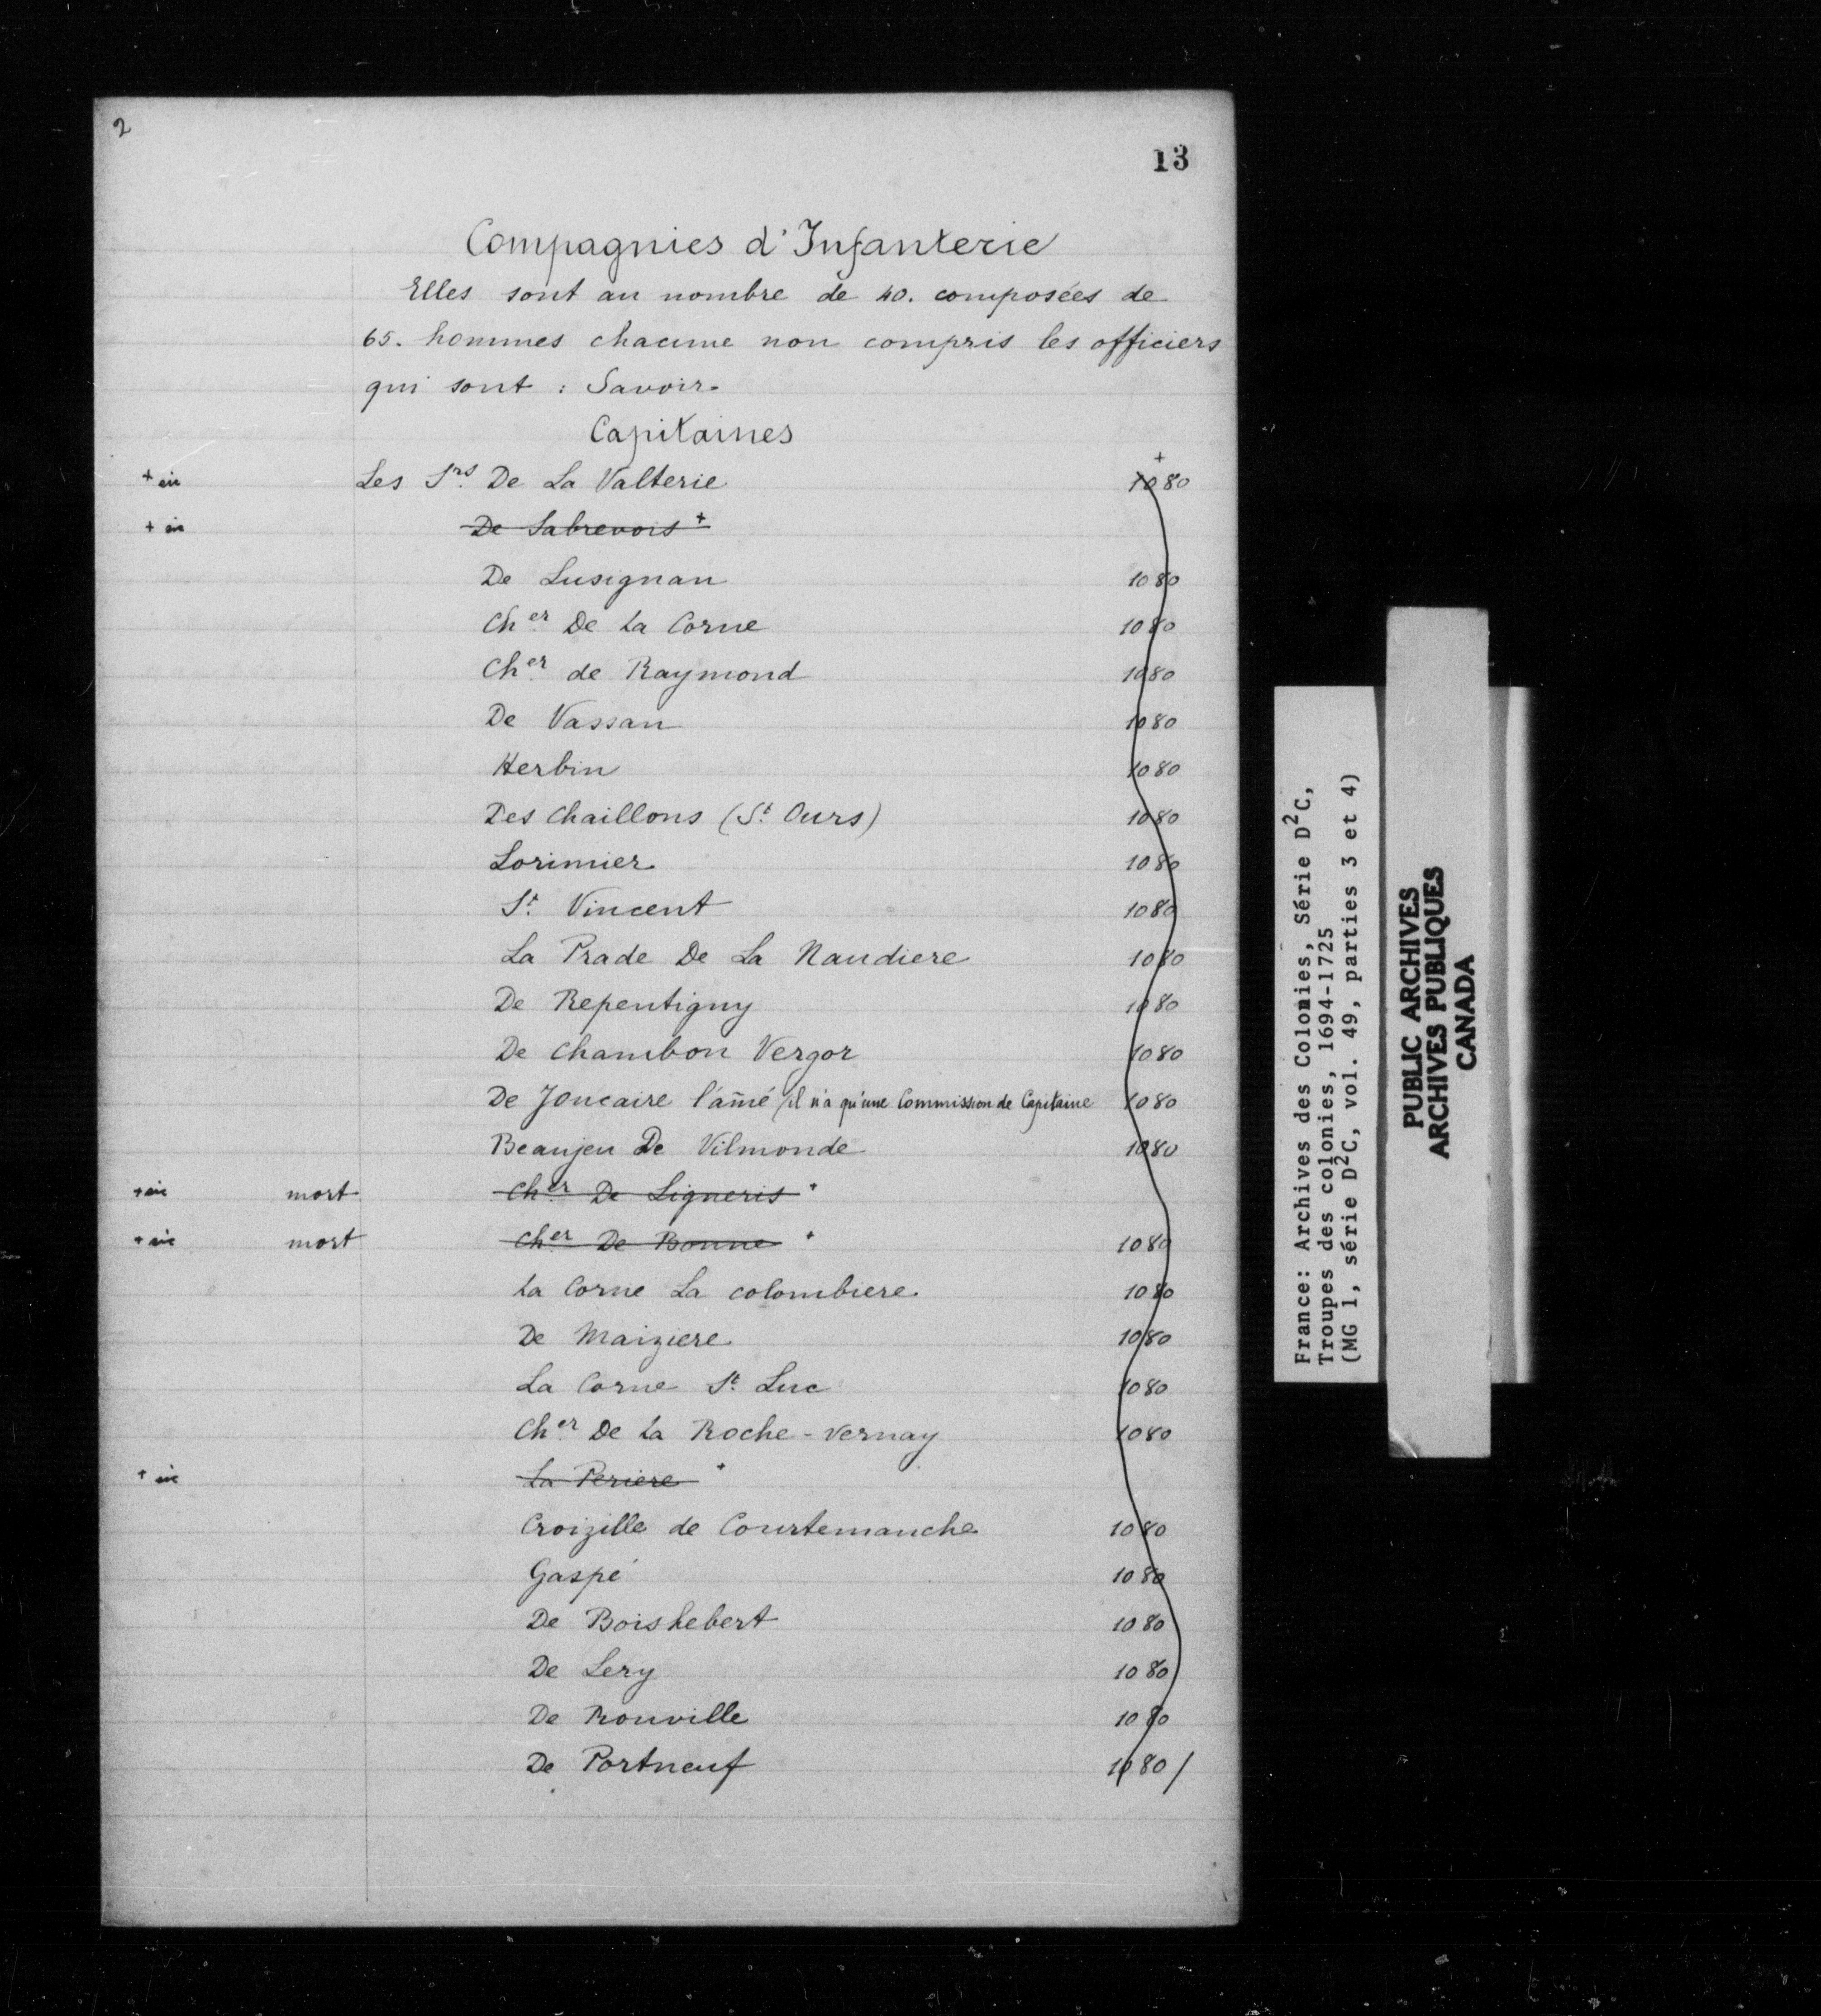 2
13
Compagnies d'Infanterie
Elles sont au nombre de 40. composées de
65. hommes chacune non compris les officiers
qui sont : Savoir.
Capitaines
+ Les Srs De La Valterie + 1080
+ De Sabrevois +
De Lusignan 1080
Cher De La Corne 1080
Cher de Raymond 1080
De Vassan 1080
Herbin 1080
Des Chaillons (St. Ours) 1080
Lorimier 1080
St. Vincent 1080
La Prade De La Naudiere 1080
De Repentigny 1080
De Chambon Vergor 1080
De Joncaire l'aîné (il n'a qu'une Commission de Capitaine 1080
Beaujeu De Vilmonde 1080
+ mort Cher De Ligneris +
+ mort Cher De Bonne + 1080
La Corne La colombiere 1080
De Maiziere 1080
La Corne St. Luc 1080
Cher De La Roche-Vernay 1080
+ La Periere +
Croizille de Courtemanche 1080
Gaspé 1080
De Boishebert 1080
De Lery 1080
De Rouville 1080
De Portneuf 1080 /
France: Archives des Colonies, Série D2C,
Troupes des colonies, 1694-1725
(MG 1, série D2C, vol. 49, parties 3 et 4)
PUBLIC ARCHIVES
ARCHIVES PUBLIQUES
CANADA